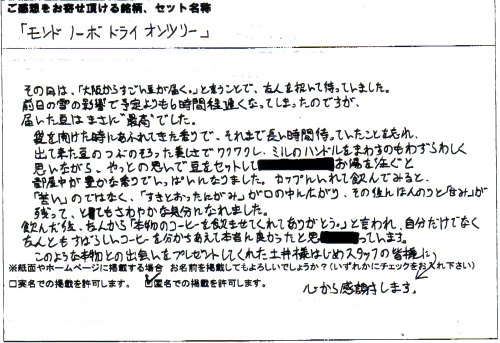 ご感想をお寄せ頂ける銘柄、セット名称
「モンド ノーボ ドライ オンツリー」
その日は、「大阪からすごい豆が届く。」と言うことで、友人を招いて待っていました。
前日の雪の影響で予定よりも6時間程遅くなってしまったのですが、
届いた豆はまさに"最高"でした。
袋を開けた時にあふれてきた香りで、それまで長い時間待っていたことを忘れ、
出て来た豆のつぶのそろった美しさでワクワクし、ミルのハンドルをまわすのもわずらわしく
思いながら、やっとの思いで豆をセットして お湯を注ぐと
部屋中が豊かな香りでいっぱいになりました。カップに入れて飲んでみると、
「苦い」のではなく、「すきとおったにがみ」が口の中に広がり、その後にほんのりと「甘み」が
残って、とてもさわやかな気分になれました。
飲んだ後、友人から「本物のコーヒーを飲ませてくれてありがとう。」と言われ、自分だけでなく
友人ともすばらしいコーヒーを分かちあえて本当に良かったと思 っています。
このような本物との出会いをプレゼントしてくれた土井様はじめスタッフの皆様に、
※紙面やホームページに掲載する場合 お名前を掲載してもよろしいでしょうか？(いずれかにチェックをお入れ下さい)
□実名での掲載を許可します。 ☑匿名での掲載を許可します。
心から感謝します。